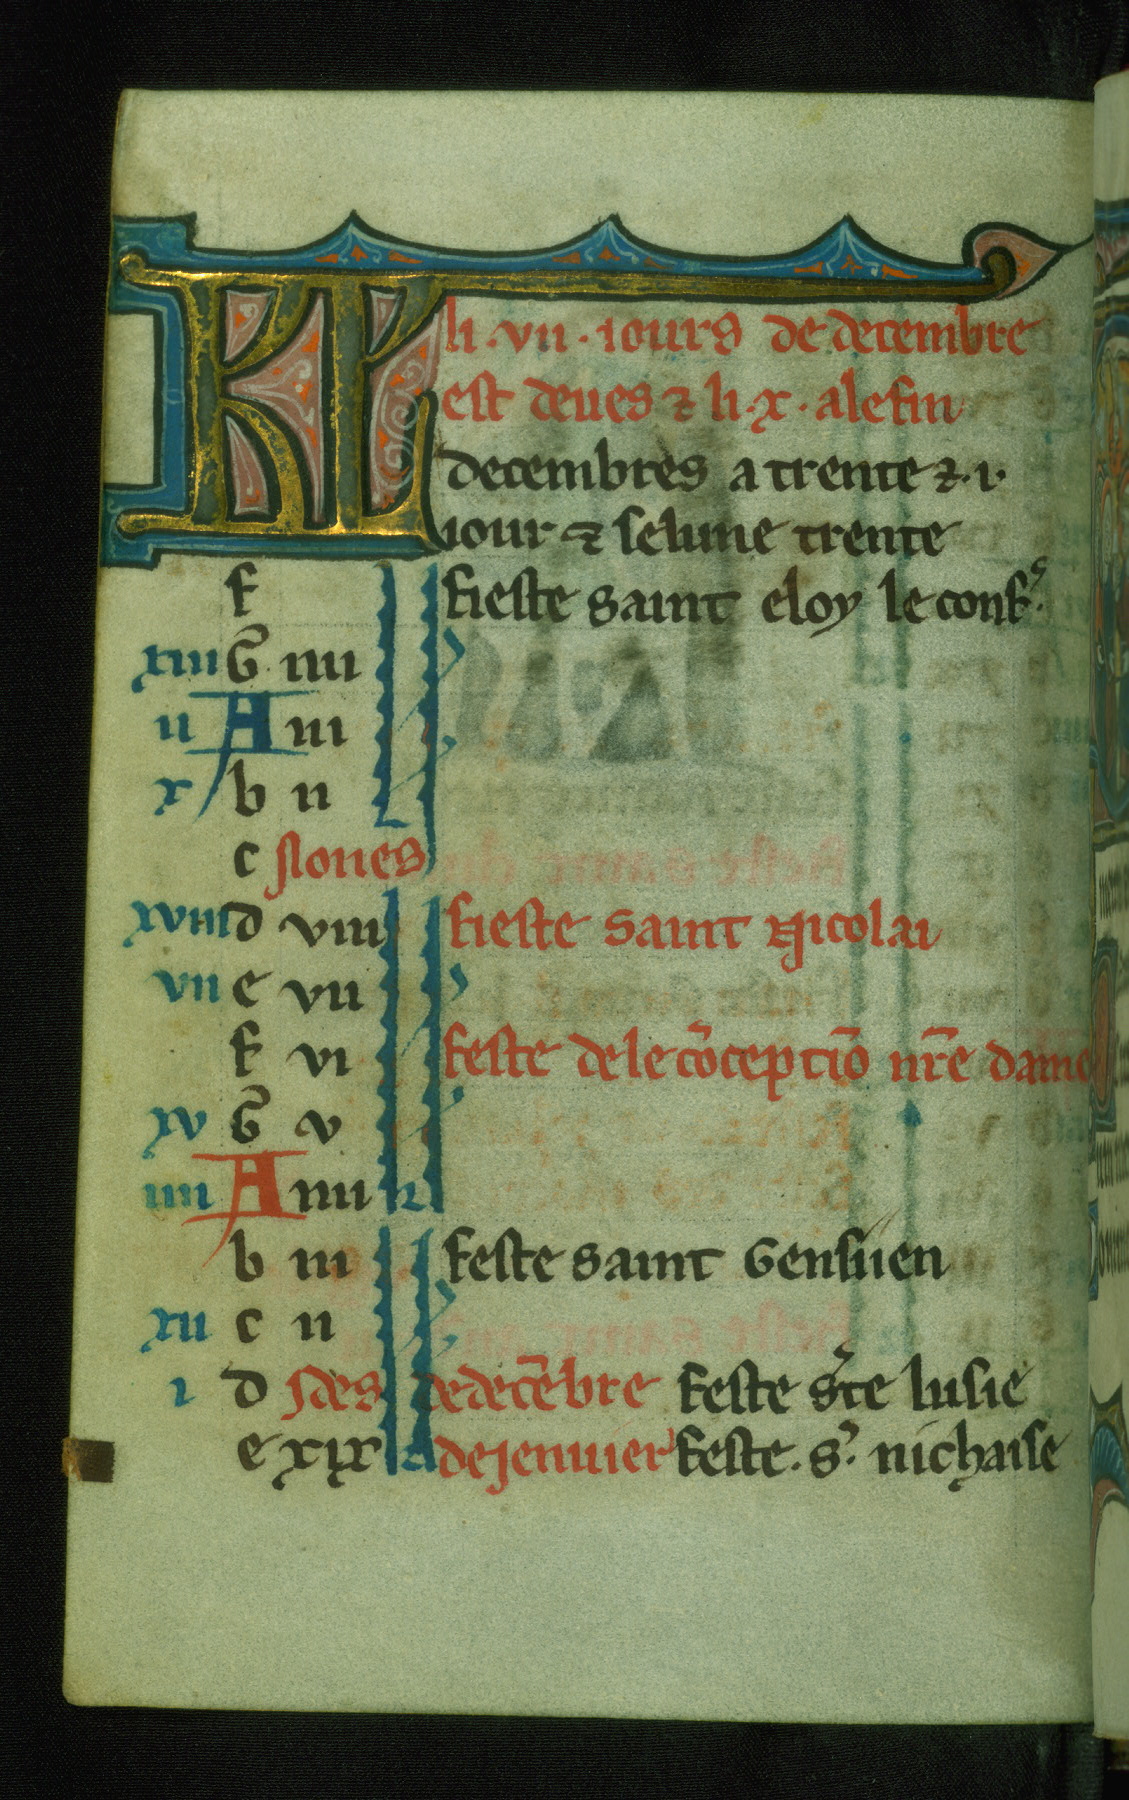 KL li .vii. iours de decembre
est deues ⁊ li .x. alefin
decembres a trente ⁊ .i.
iour ⁊ selune trente
f fieste saint eloy le conf.
xiii G iiii
ii A iii
x b ii
c Nones
xviii d viii fieste saint Nicolai
vii e vii
f vi feste dele cōceptiō nr̄e dame
xv G v
iiii A iiii
b iii feste saint Gensiien
xii c ii
i d Ides de decēbre feste s̄te lusie
e xix kl de jenvier feste .s. nichaise